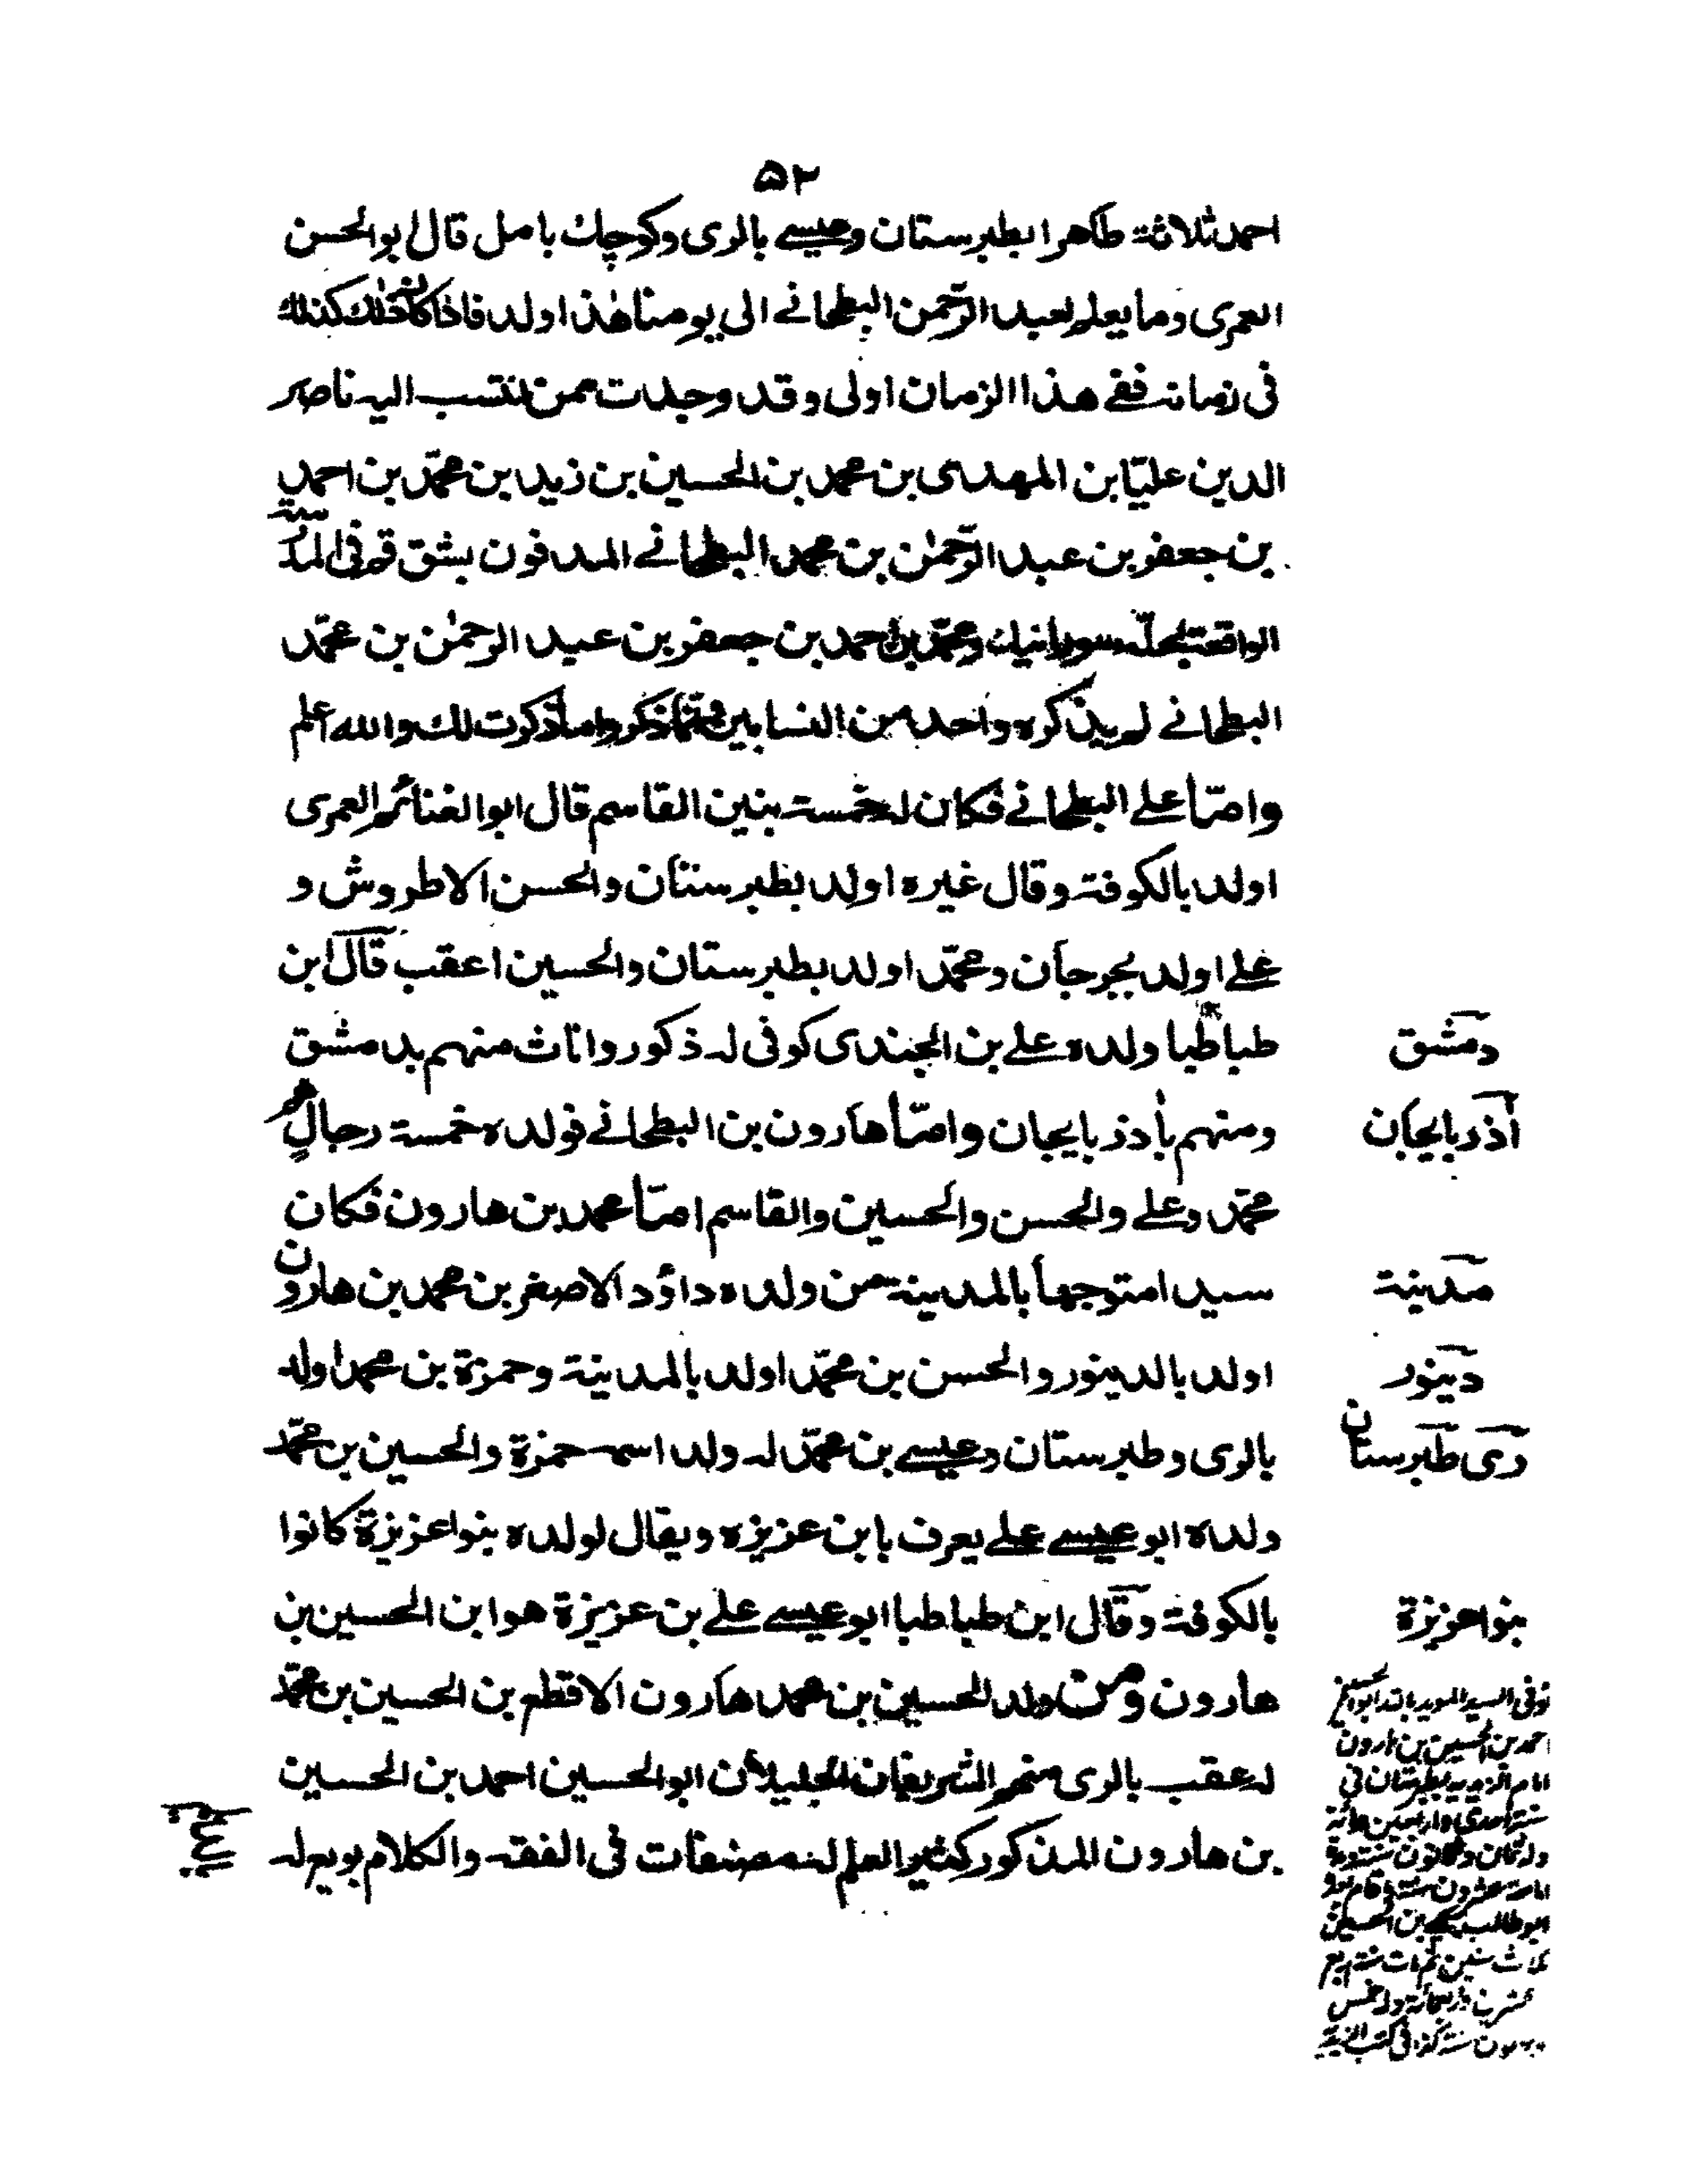 ۵۲
احمد ثلاثة طاهرا بطبرستان وعيسے بالرى وكوچك بامل قال ابوالحسن
العمرى وما يعلم لعبد الرّحمن البطحانے الى يومنا هٰذا اولد فاذا كان ذلك كذلك
فى زمانه ففے هذا الزمان اولى وقد وجدت ممن تنتسب اليه ناصر
الدين عليّا بن المهدى بن محمد بن الحسين بن زيد بن محمّد بن احمد
بن جعفر بن عبد الرّحمٰن بن محمد البطحانے المدفون بشق قم فى المدرسة
الواقعة بمحلّه سورانيك ومحمّد بن احمد بن جعفر بن عبد الرحمٰن بن محمّد
البطحانے لم يذكره واحد من النسابين وذكرت لك والله اعلم
وامّا علے البطحانے فكان له خمسة بنين القاسم قال ابو الغنائم العمرى
اولد بالكوفة وقال غيره اولد بطبرستان والحسن الاطروش و
علے اولد بجرجان ومحمّد اولد بطبرستان والحسين اعقب قال ابن
طباطبا ولده علے بن الجندى كوفى له ذكور واناث منهم بدمشق
ومنهم بأذربايجان وامّا هارون بن البطحانے فولده خمسة رجالٍ هم
محمّد وعلے والحسن والحسين والقاسم امّا محمد بن هارون فكان
سيدا متوجها بالمدينة من ولده داؤد الاصغر بن محمد بن هارون
اولد بالدينور والحسن بن محمّد اولد بالمدينة وحمزة بن محمد اولد
بالرى وطبرستان وعيسے بن محمّد له ولد اسمه حمزة والحسين بن محمّد
ولده ابو عيسے علے يعرف بابن عزيزه ويقال لولده بنوا عزيزة كانوا
بالكوفة وقال ابن طباطبا ابو عيسے علے بن عزيزة هو ابن الحسين بن
هارون ومن ولد الحسين بن محمد هارون الاقطع بن الحسين بن محمّد
له عقب بالرى منهم الشريفان الجليلان ابو الحسين احمد بن الحسين
بن هارون المذكور كثير العلم له مصنفات فى الفقه والكلام بويع له
دمشق
أذربايجان
مدينة
دينور
رى طبرستان
بنوا عزيزة
توفى السيد المويد بالله ابو الحسين
احمد بن الحسين بن هارون
امام الزيدية بطبرستان فى
سنة احدى واربعمائة
وله ثمان وثمانون سنة ومدة
امامته عشرون سنة وقام بعده
ابو طالب يحيے بن الحسين
ثلاث سنين ثم مات سنة اربع
عشرين واربعمائة وله خمس
سنة كذا فى كتب الزيدية